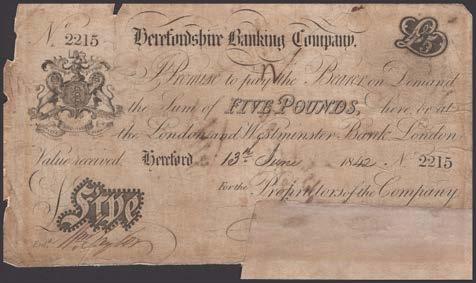 No. 2215 Herefordshire Banking Company. £5
I Promise to pay the Bearer on Demand
the Sum of FIVE POUNDS, here or at
the London and Westminster Bank London
Value received. Hereford 13th June 1842 No. 2215
For the Proprietors of the Company
£Five
Entd.